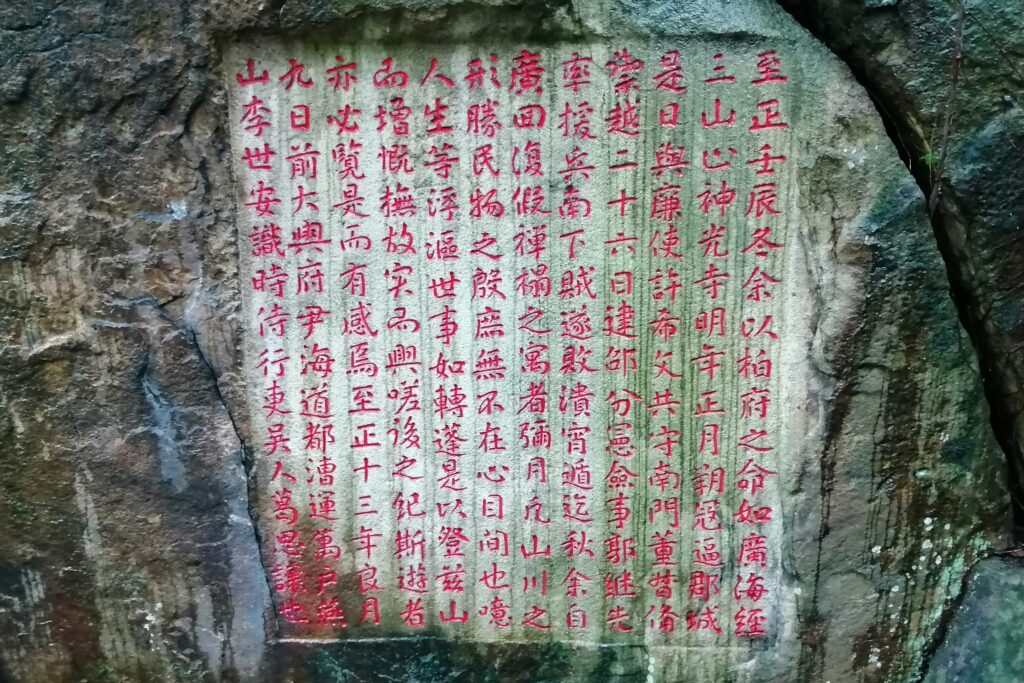 至正壬辰冬余以柏府之命如廣海經
三山止神光寺明年正月朔寇逼郡城
是日與廉使許希文共守南門董督脩
禦越二十六日建邵分憲僉事郭継先
率援兵南下賊遂敗潰宵遁迄秋余自
廣回復假禪榻之寓者彌月凡山川之
形勝民物之殷庶無不在心目間也噫
人生等浮漚世事如轉蓬是以登茲山
而增慨撫故實而興嗟後之紀斯遊者
亦必覽是而有感焉至正十三年良月
九日前大興府尹海道都漕運萬戸燕
山李世安識時侍行吏吳人葛思讓也